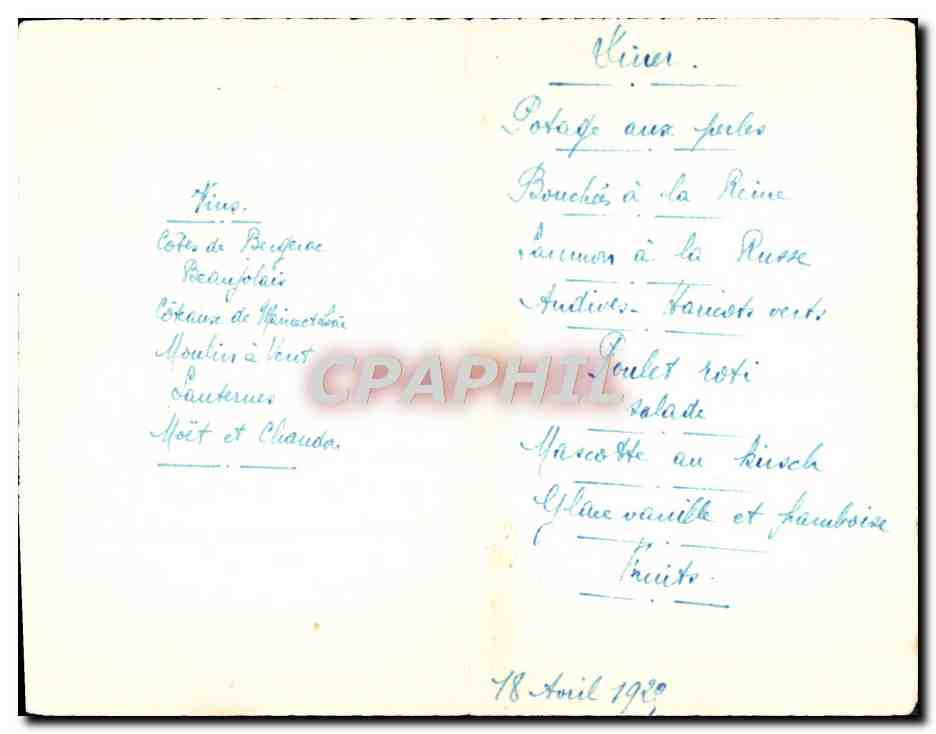 Vins.
Côtes de Bergerac
Beaujolais
Côteaux de
Moulin à Vent
Sauternes
Moët et Chandon
Diner.
Potage aux perles
Bouchées à la Reine
Saumon à la Russe
Andives - Haricots verts
Poulet roti
salade
Mascotte au kirsch
Glace vanille et framboise
Fruits.
18 Avril 1929
CPAPHIL